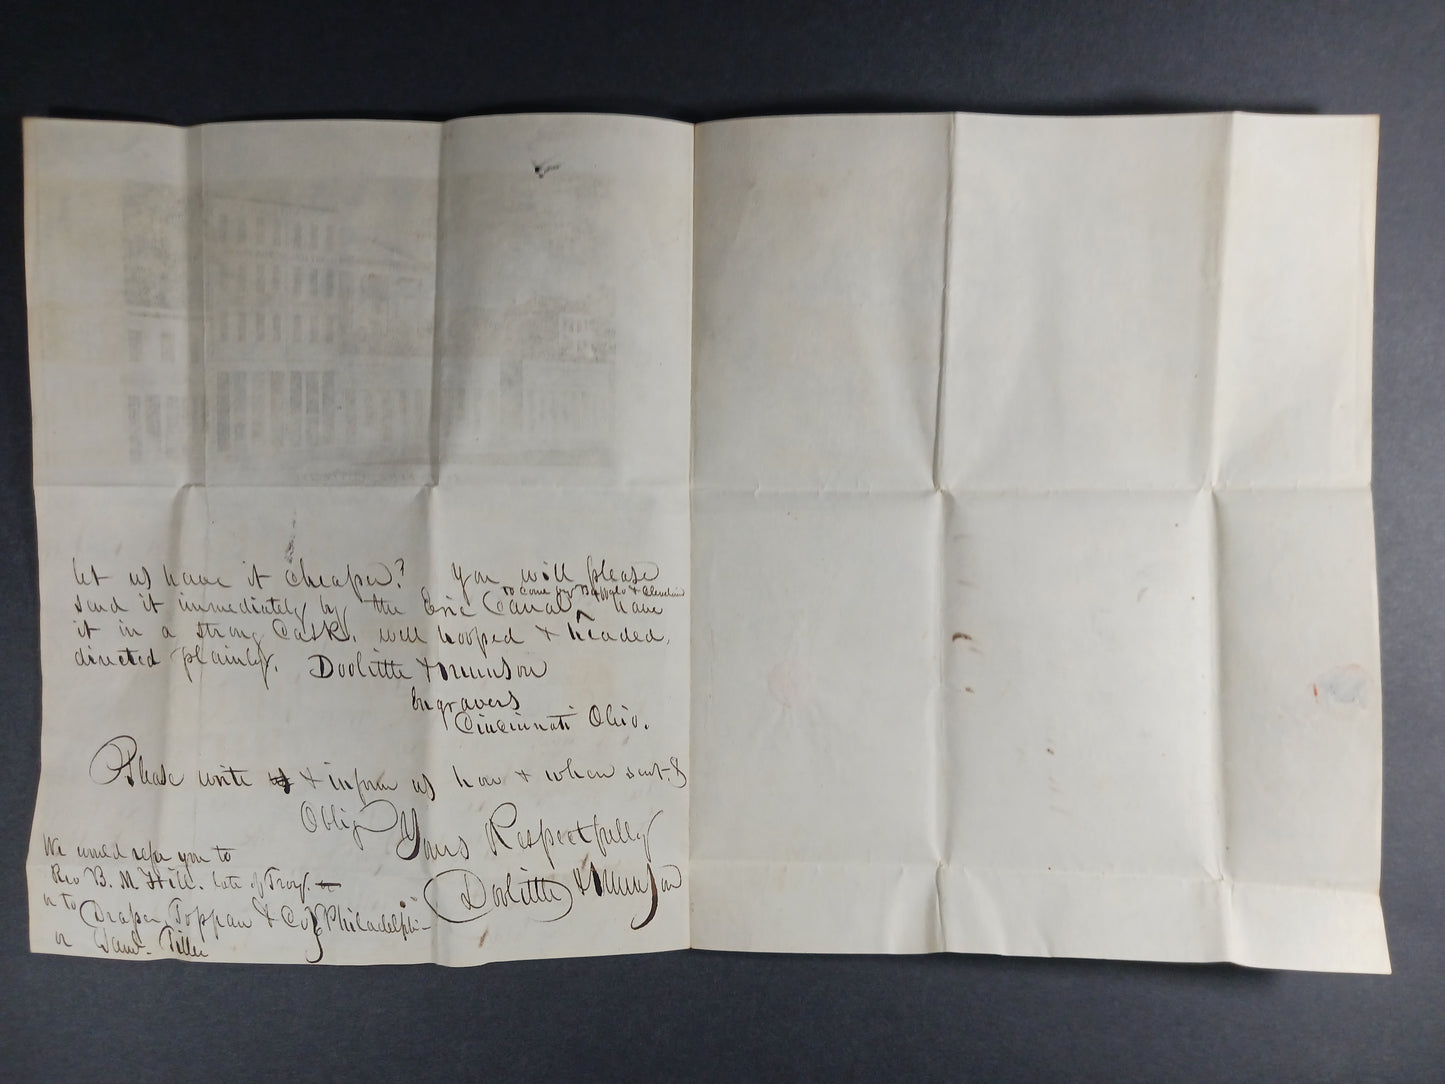 let us have it cheaper? You will please
send it immediately by the Erie Canal ^ to come by Buffalo & Cleveland have
it in a strong Cask. well hooped & headed,
directed plainly. Doolittle & Munson
Engravers
Cincinnati Ohio.
Please write & inform us how & when sent. &
Oblig
Yours Respectfully
Doolittle & Munson
We would refer you to
Rev B. M. Hill. late of Troy.
or to Draper, Toppan & Co. Philadelphi
or Saml. Tiller